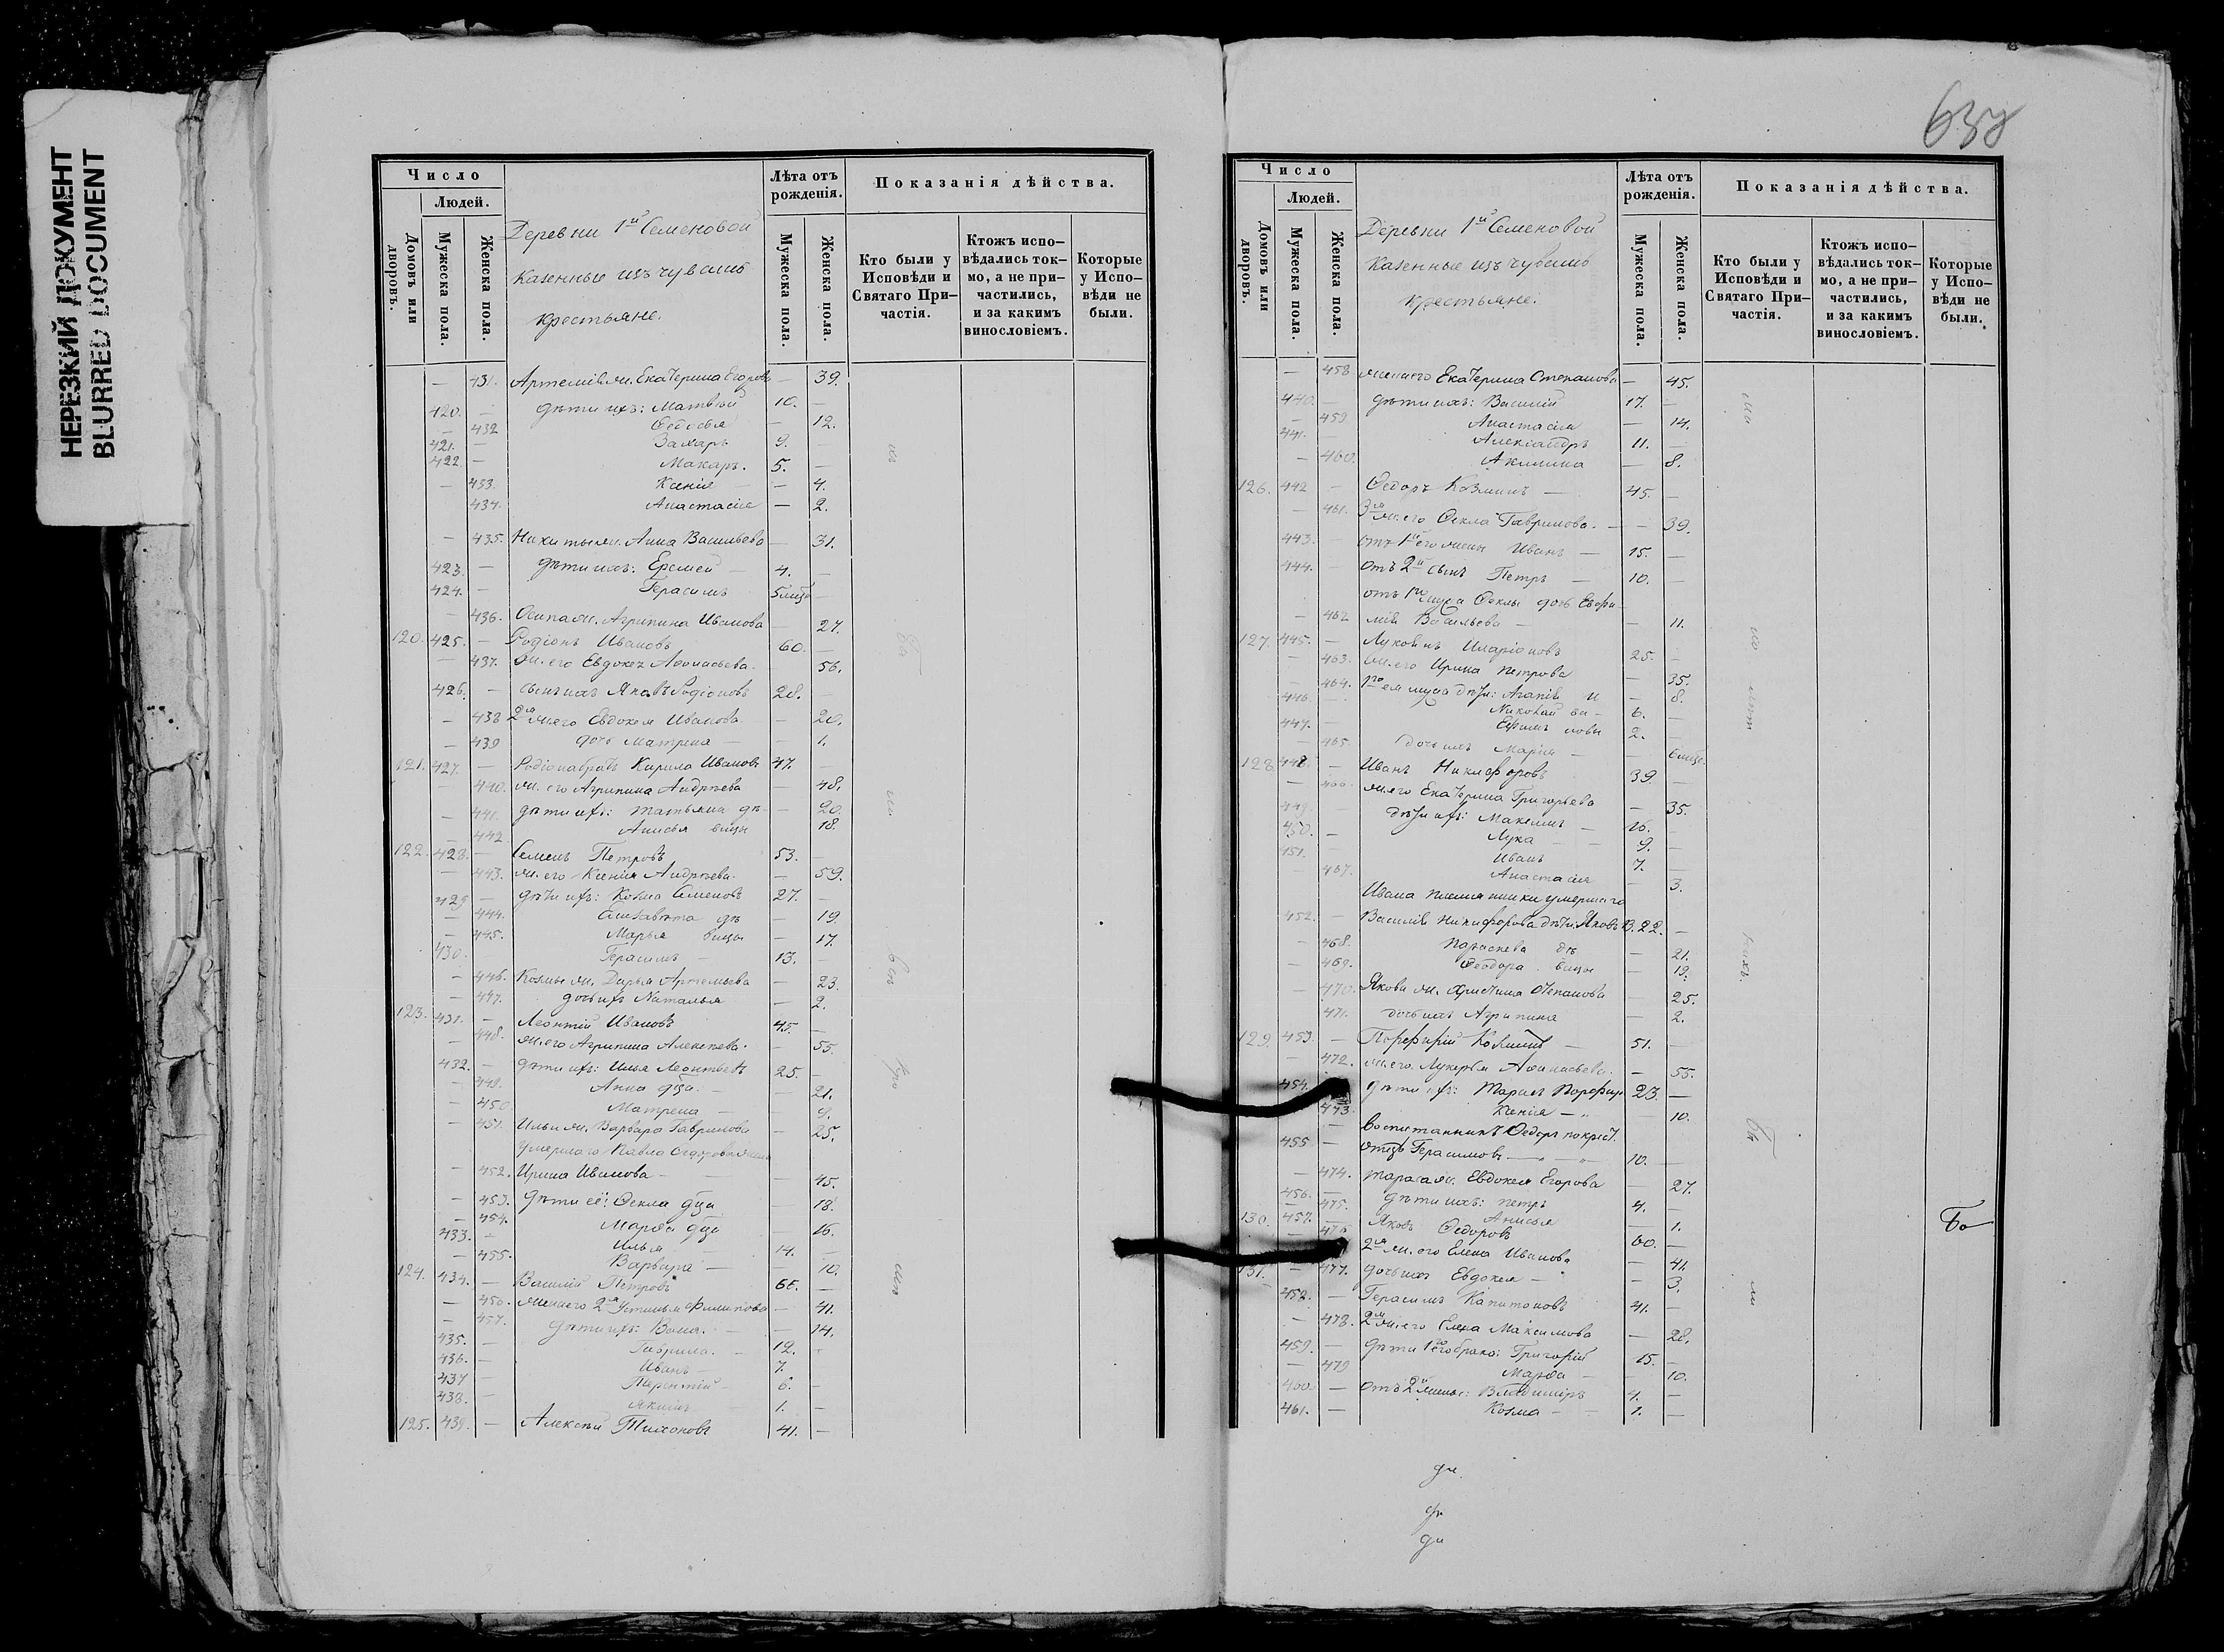 НЕРЕЗКИЙ ДОКУМЕНТ
BLURRED DOCUMENT
Число
Людей.
Домовъ или дворовъ.
Мужеска пола.
Женска пола.
Деревни 1й Семеновой
казенные изъ чувашъ
крестьяне.
Лѣта отъ рожденія.
Мужеска пола.
Женска пола.
Показанія дѣйства.
Кто были у Исповѣди и Святаго При–частія.
Ктожъ испо–вѣдались ток–мо, а не при–частились, и за какимъ винословіемъ.
Которые у Испо–вѣди не были.
— 431. Артемія ж. Екатерина Егорова — 39.
420. — дѣти ихъ: Матвѣй 10. —
— 432 Федосья — 12.
421. — Захаръ 9. —
422. — Макаръ. 5. —
— 433. Ксенія — 4.
434. Анастасія — 2.
— 435. Никиты ж. Анна Васильева — 31.
423. — дѣти ихъ: Еремей 4. —
424. — Герасимъ —
— 436. Осипа ж. Агрипина Иванова — 27.
120. 425. — Родіонъ Ивановъ 60. —
— 437. ж. его Евдокея Афонасьева — 56.
426. — сынъ ихъ Яковъ Родіоновъ 28. —
— 438 2я ж. его Евдокея Иванова — 20.
— 439 дочь Матрена — 1.
121. 427. — Родіона братъ Кирила Ивановъ 47. —
— 440. ж. его Агрипина Андрѣева — 48.
— 441. дѣти ихъ: Татьяна дѣ — 20.
— 442 Анисья вицы 18.
122. 428. — Семенъ Петровъ 53. —
— 443. ж. его Ксенія Андрѣева. — 59.
429 — дѣти ихъ: Козма Семеновъ 27. —
— 444. Елизавѣта дѣ — 19.
— 445. Марья вицы — 17.
430. Герасимъ — 13. —
— 446. Козмы ж. Дарья Артемьева — 23.
— 447. дочь ихъ Наталья — 2.
123. 431. — Леонтій Ивановъ 45. —
— 448. ж. его Агрипина Алексѣева. — 55.
432. — дѣти ихъ: Илья Леонтьевъ 25. —
— 449. Анна дца. — 21.
— 450. Матрена — 9.
— 451. Ильи ж. Варвара Гаврилова — 25.
умершаго Павла Федорова жена
— 452. Ирина Иванова — 45.
— 453. дѣти её: Фекла дца — 18.
— 454. Марфа дца 16.
433. — Илья 14. —
— 455. Варвара — 10.
124. 434. — Василій Петровъ 66. —
— 456. жена его 2я Устинья Филипова — 41.
— 457. дѣти ихъ: — 14.
435. — Гаврила. 12. —
436. — Иванъ 7.
437 — Терентій 6. —
438. — Якимъ 1. —
125. 439. — Алексѣй Тихоновъ 41. —
638
Число
Людей.
Домовъ или дворовъ.
Мужеска пола.
Женска пола.
Деревни 1й Семеновой
казенные изъ чувашъ
крестьяне.
Лѣта отъ рожденія.
Мужеска пола.
Женска пола.
Показанія дѣйства.
Кто были у Исповѣди и Святаго При–частія.
Ктожъ испо–вѣдались ток–мо, а не при–частились, и за какимъ винословіемъ.
Которые у Испо–вѣди не были.
— 458 жена его Екатерина Степанова — 45.
440. — дѣти ихъ: Василій 17. —
— 459 Анастасія — 14.
441. Александръ 11. —
— 460. Акилина — 8.
126. 442 — Федоръ Козминъ — 45. —
— 461. 3я ж. его Фекла Гаврилова. — 39.
443. — отъ 1й его жены Иванъ — 15. —
444. — отъ 2й сынъ Петръ — 10. —
отъ 1го мужа Феклы дочь Евфи
— 462 мія Васильева — 11.
127. 445. — Лукоянъ Иларіоновъ 25. —
— 463. ж. его Ирина Петрова — 35.
— 464. 1го ея мужа дѣти: Агапія и — 8.
446 — Николай 6. —
447. — Ефимъ 2. —
— 465. дочь ихъ Марія —
128. 448. — Иванъ Никифоровъ 39. —
— 466. ж. его Екатерина Григорьева — 35.
449. дѣти ихъ: Максимъ 16. —
450. — Лука — 9. —
451. — Иванъ 7. —
— 467. Анастасія — 3.
Ивана племянники умершаго
452. — Василія Никифорова дѣти: Яковъ В. 22. —
— 468. Параскева дѣ — 21.
— 469. Феодора вицы — 19.
— 470. Якова ж. Христина Степанова — 25.
471. дочь ихъ Агрипина — 2.
129. 453. — Порфирій Козминъ — 51. —
— 472. ж. его Лукерья Афанасьева. — 55.
454. дѣти ихъ: Тарасъ Порфир. 23. —
473. Ксенія — 10.
воспитанникъ Федоръ по крест.
455. отцѣ Герасимовъ 10. —
— 474. Тараса ж. Евдокея Егорова — 27.
456. — дѣти ихъ: Петръ 4. —
— 475. Анисья — 1.
130. 457. — Яковъ Федоровъ 60. —
— 476 2я ж. его Елена Иванова — 41.
131. — 477. дочь ихъ Евдокея — 3.
458. — Герасимъ Капитоновъ 41. —
— 478. 2я ж. его Елена Максимова — 28.
459. — дѣти 1го его брака: Григорій 15. —
— 479 Марфа — 10.
460. — отъ 2й жены: Владиміръ 4. —
461. — Козма — 1. —